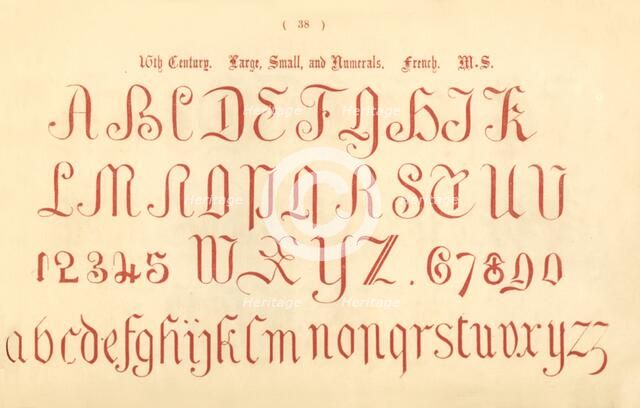 ( 38 )
16th Century. Large, Small, and Numerals. French. M.S.
A B C D E F G H I K
L M N O P Q R S T U V
1 2 3 4 5 W X Y Z. 6 7 8 9 0
a b c d e f g h i j k l m n o p q r s t u v x y z z
Heritage
Heritage
Heritage
Heritage
Heritage
Heritage